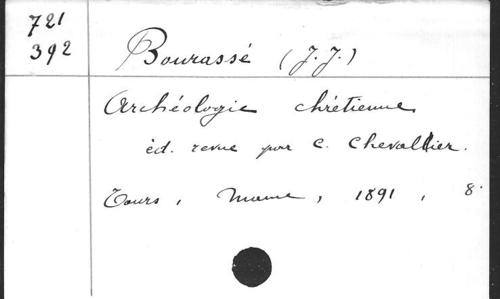 721
392
Bourassé (J.J.)
Archéologie chrétienne
éd. revue par C. Chevallier.
Tours, Mame, 1891, 8°